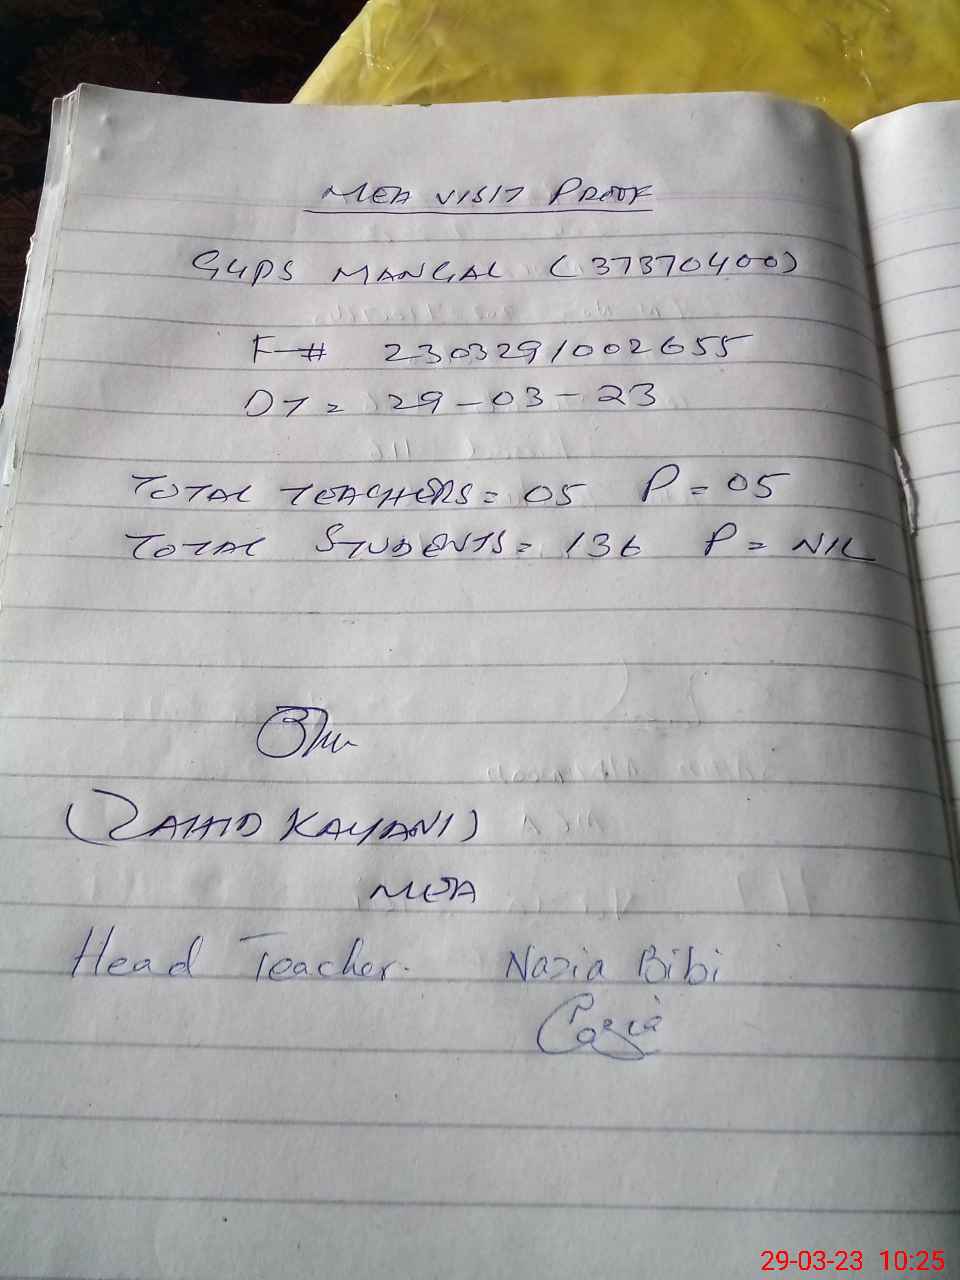 MEA VISIT PROOF
GGPS MANGAL (37370400)
F-# 2303291002655
DT = 29-03-23
TOTAL TEACHERS = 05 P = 05
TOTAL STUDENTS = 136 P = NIL
(ZAHID KAYANI)
MEA
Head Teacher. Nazia Bibi
29-03-23 10:25